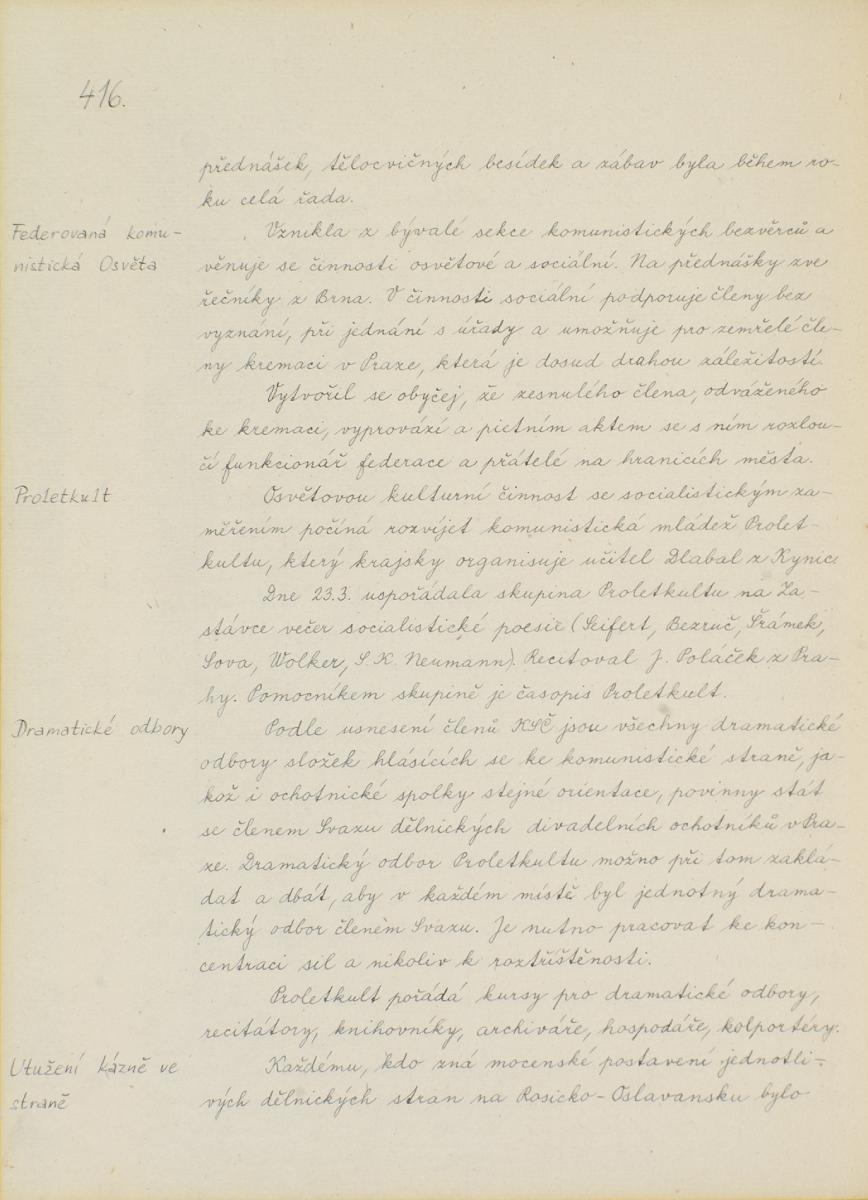 416.
přednášek, tělocvičných besídek a zábav byla během ro-
ku celá řada.
Federovaná komu-
nistická Osvěta
Vznikla z bývalé sekce komunistických bezvěrců a
věnuje se činnosti osvětové a sociální. Na přednášky zve
řečníky z Brna. V činnosti sociální podporuje členy bez
vyznání, při jednání s úřady a umožňuje pro zemřelé čle-
ny kremaci v Praze, která je dosud drahou záležitostí.
Vytvořil se obyčej, že zesnulého člena, odváženého
ke kremaci, vyprovází a pietním aktem se s ním rozlou-
čí funkcionář federace a přátelé na hranicích města.
Proletkult
Osvětovou kulturní činnost se socialistickým za-
měřením počíná rozvíjet komunistická mládež Prolet-
kultu, který krajsky organisuje učitel Dlabal z Kynic
Dne 23.3. uspořádala skupina Proletkultu na Za-
stávce večer socialistické poesie (Seifert, Bezruč, Šrámek,
Sova, Wolker, S. K. Neumann). Recitoval J. Poláček z Pra-
hy. Pomocníkem skupině je časopis Proletkult.
Dramatické odbory
Podle usnesení členů KSČ jsou všechny dramatické
odbory složek hlásících se ke komunistické straně, ja-
kož i ochotnické spolky stejné orientace, povinny stát
se členem Svazu dělnických divadelních ochotníků v Pra-
ze. Dramatický odbor Proletkultu možno při tom zaklá-
dat a dbát, aby v každém místě byl jednotný drama-
tický odbor členem Svazu. Je nutno pracovat ke kon-
centraci sil a nikoliv k roztříštěnosti.
Proletkult pořádá kursy pro dramatické odbory,
recitátory, knihovníky, archiváře, hospodáře, kolportéry.
Utužení kázně ve
straně
Každému, kdo zná mocenské postavení jednotli-
vých dělnických stran na Rosicko-Oslavansku bylo